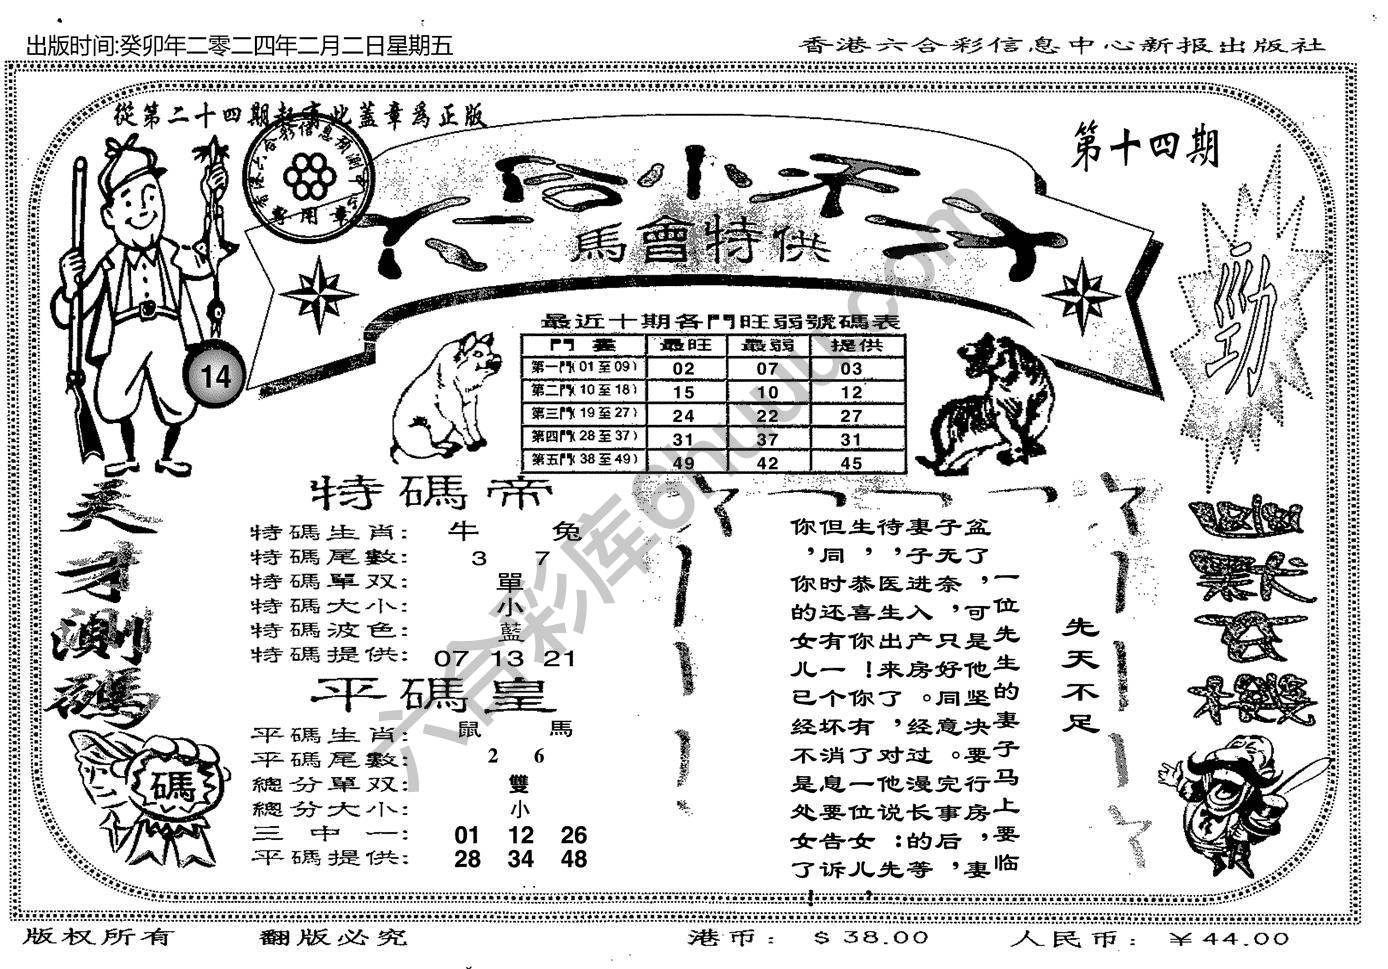 出版时间:癸卯年二零二四年二月二日星期五
香港六合彩信息中心新报出版社
從第二十四期起蓋章爲正版
第十四期
六合小天才
馬會特供
勁
14
最近十期各門旺弱號碼表
門 最旺 最弱 提供
第一門(01至09) 02 07 03
第二門(10至18) 15 10 12
第三門(19至27) 24 22 27
第四門(28至37) 31 37 31
第五門(38至49) 49 42 45
天才測碼
特碼帝
特碼生肖: 牛 兔
特碼尾數: 3 7
特碼單双: 單
特碼大小: 小
特碼波色: 藍
特碼提供: 07 13 21
平碼皇
平碼生肖: 鼠 馬
平碼尾數: 2 6
總分單双: 雙
總分大小: 小
三中一: 01 12 26
平碼提供: 28 34 48
碼
先天不足
一位先生的妻子马上要临
盆了,可是他坚决要行房,妻
子无奈,只好同意。完事后,
妻子进入产房。经过漫长的等
待,医生出来了,对他说:先
生,恭喜你!你有了一位女儿,
但同时还有一个坏消息要告诉
你,你的女儿已经不是处女了!
六合彩库6huuu.com
版权所有
翻版必究
港币: $38.00
人民币: ￥44.00